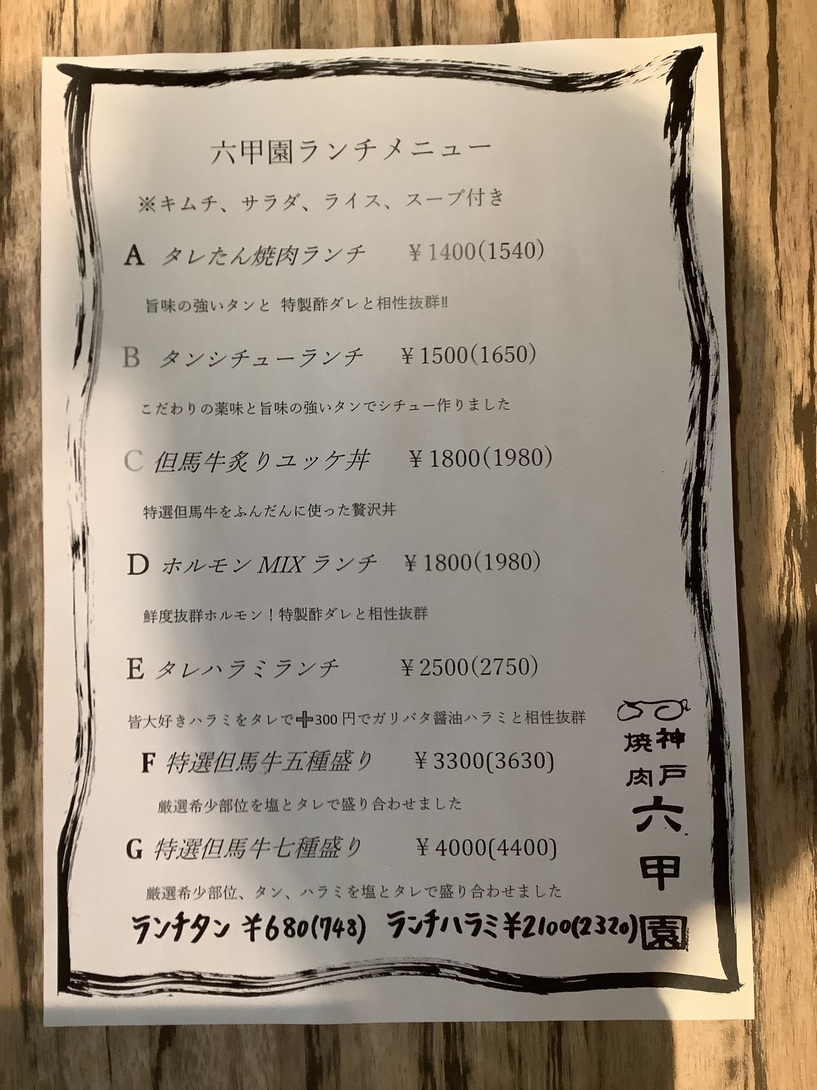 六甲園ランチメニュー
※キムチ、サラダ、ライス、スープ付き
A タレたん焼肉ランチ ￥1400(1540)
旨味の強いタンと 特製酢ダレと相性抜群‼
B タンシチューランチ ￥1500(1650)
こだわりの薬味と旨味の強いタンでシチュー作りました
C 但馬牛炙りユッケ丼 ￥1800(1980)
特選但馬牛をふんだんに使った贅沢丼
D ホルモン MIX ランチ ￥1800(1980)
鮮度抜群ホルモン！特製酢ダレと相性抜群
E タレハラミランチ ￥2500(2750)
皆大好きハラミをタレで➕300 円でガリバタ醤油ハラミと相性抜群
F 特選但馬牛五種盛り ￥3300(3630)
厳選希少部位を塩とタレで盛り合わせました
G 特選但馬牛七種盛り ￥4000(4400)
厳選希少部位、タン、ハラミを塩とタレで盛り合わせました
ランチタン ￥680(748) ランチハラミ￥2100(2320)
神戸
焼肉
六甲園